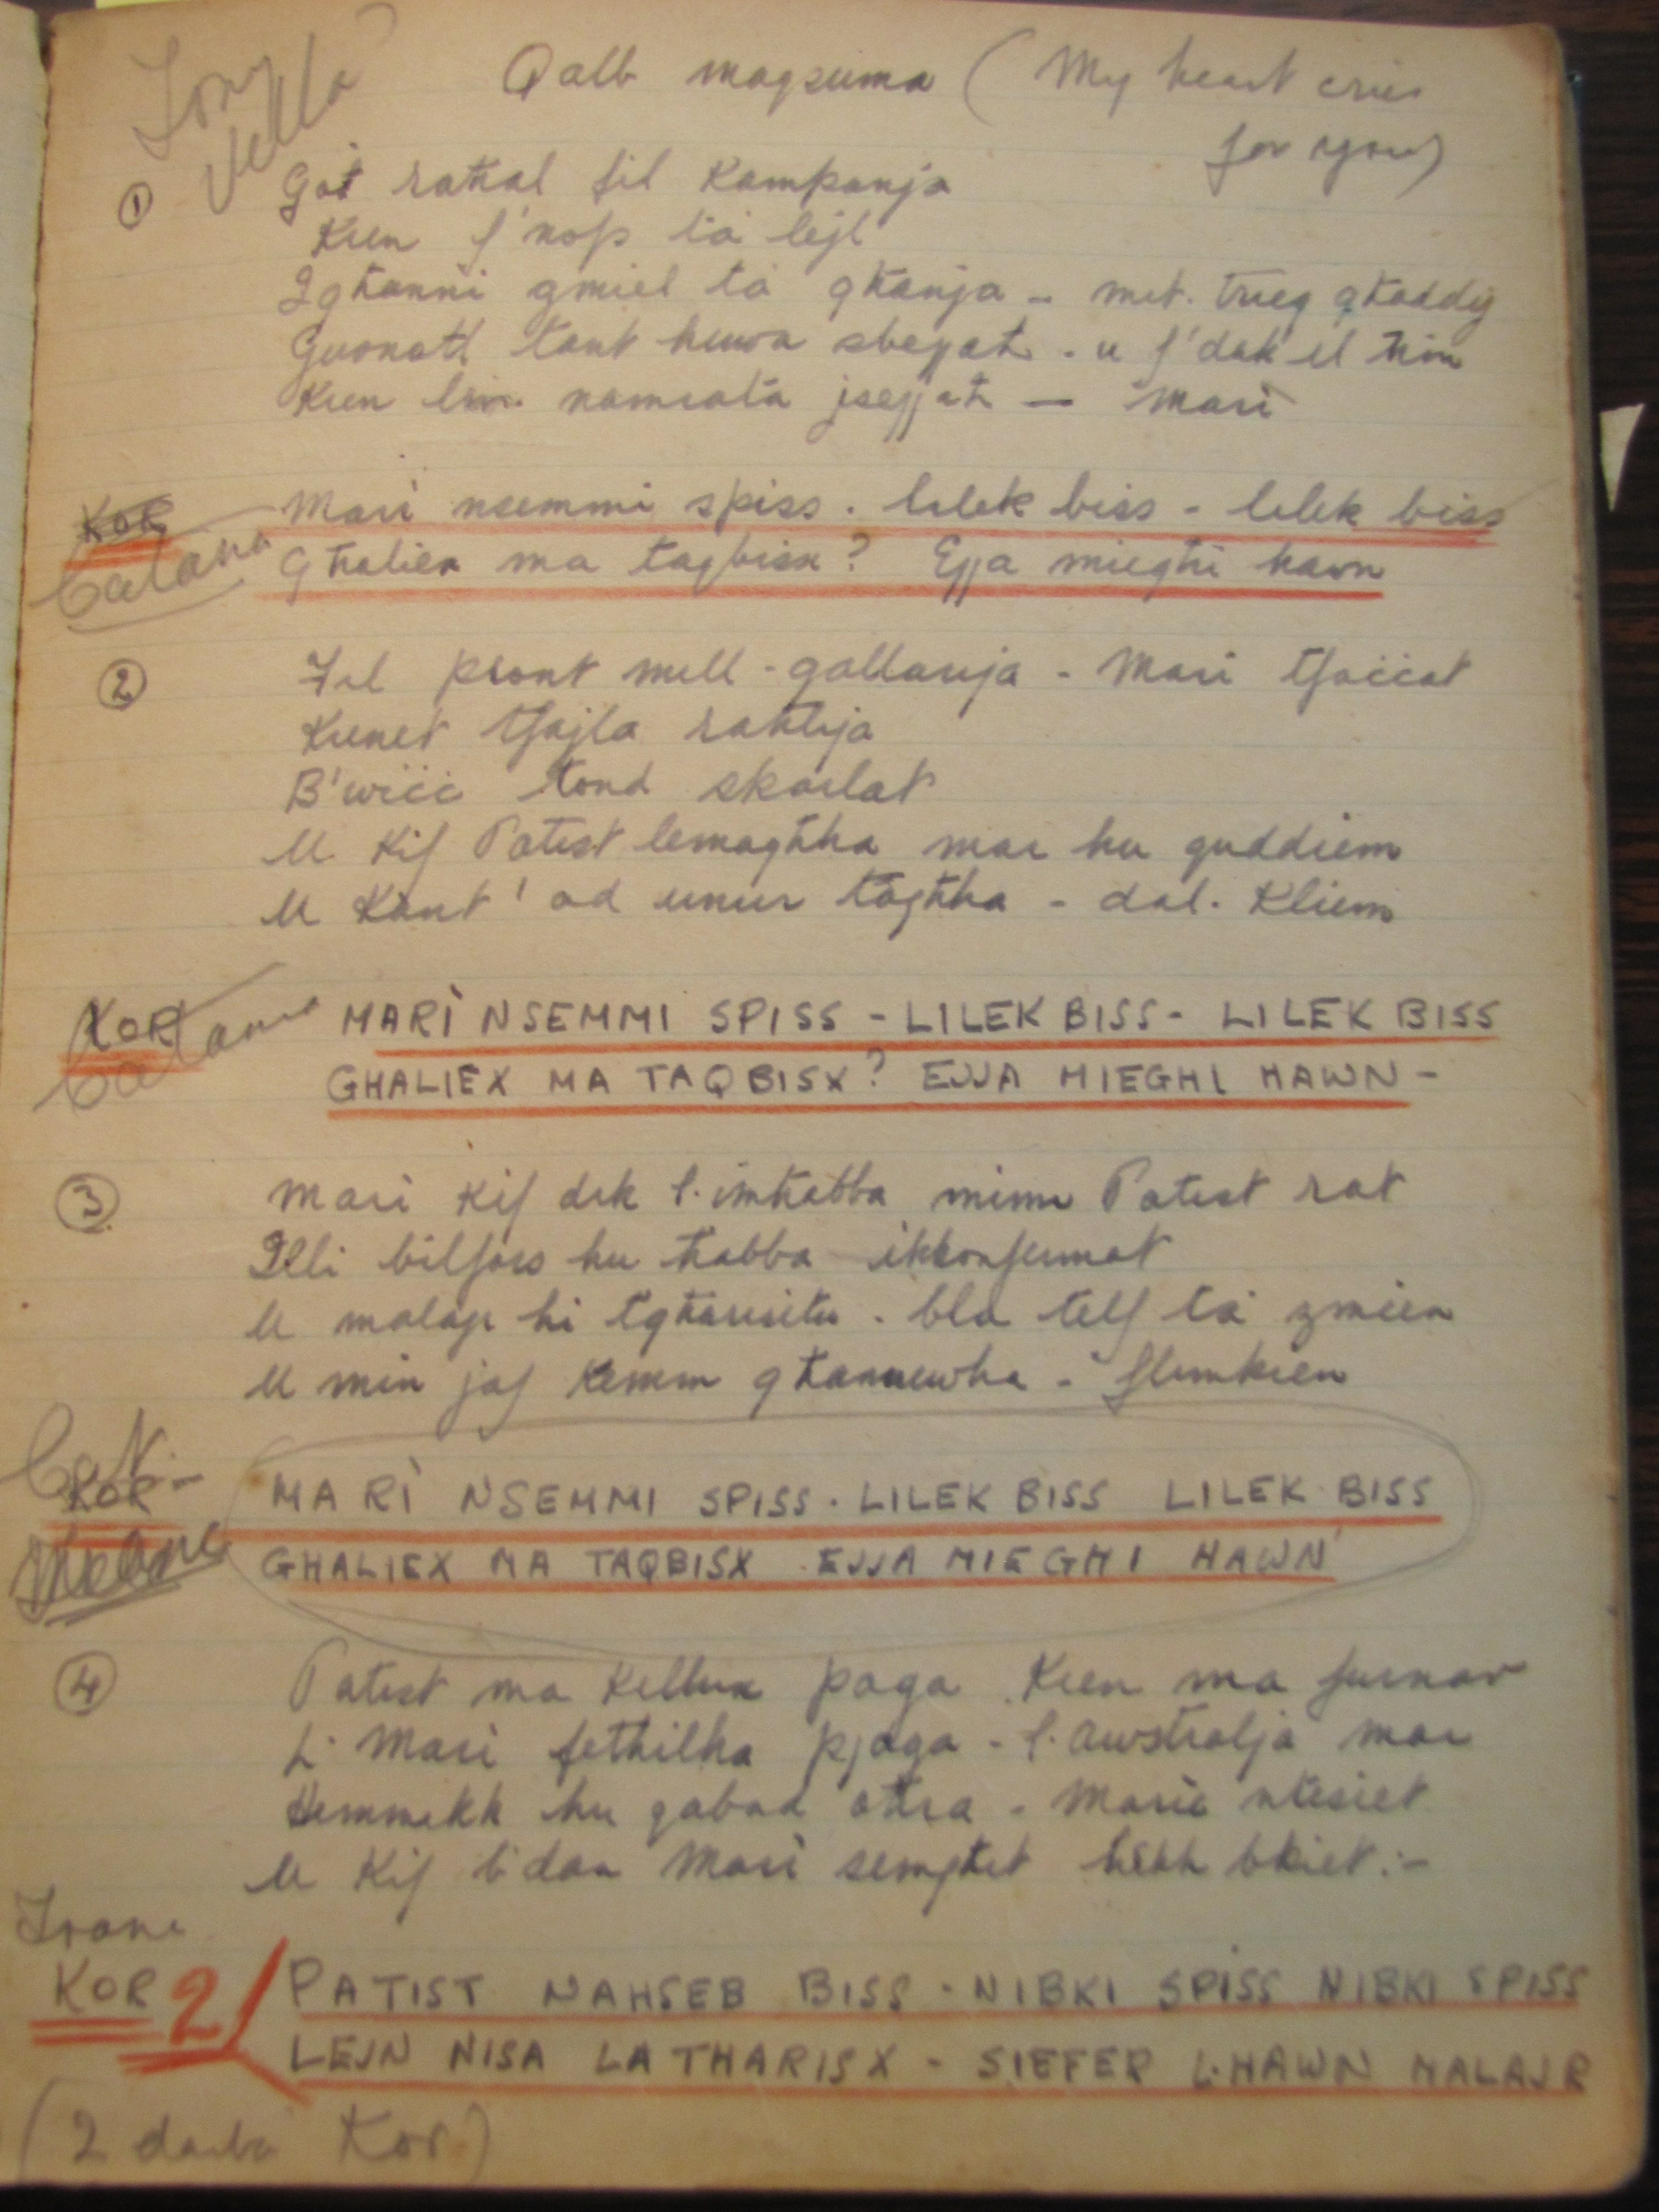 Tony Vella
Qalb maqsuma (My heart cries
for you)
① Ġot raħal fil kampanja
Kien f'nofs ta lejl
Igħanni ġmiel ta għanja - mit. trieq għaddej
Ġuvnott tant huwa sbejjaħ - u f'dak il ħin
Kien lin. namrata jsejjaħ — Mari
KOR Mari nsemmi spiss. lilek biss - lilek biss
Catania Għaliex ma taqbisx? Ejja miegħi hawn
② Fil pront mill-gallarija - Mari tfaċċat
Kienet tfajla raħlija
B'wiċċ tond skarlat
U kif Patist lemagħha mar hu quddiem
U kant' ad unur tagħha - dal. kliem
KOR MARÌ NSEMMI SPISS - LILEK BISS - LILEK BISS
Catania GHALIEX MA TAQBISX? EJJA MIEGHI HAWN -
③ Mari kif dik l. imħabba minn Patist rat
Illi bilfors hu ħabba ikkonfermat
U malajr hi tgħarsitu. bla telf ta żmien
U min jaf kemm għannewha - flimkien
CAT. -
KOR MARÌ NSEMMI SPISS. LILEK BISS LILEK BISS
GHALIEX MA TAQBISX. EJJA MIEGHI HAWN
④ Patist ma kellux paga. Kien ma furnar
L. Mari fetħilha pjaga - l. Awstralja mar
Hemmekk hu qabad oħra - Mariè nħesiet
U kif b'dan Mari semgħet hekk bkiet :-
KOR 2 PATIST NAHSEB BISS - NIBKI SPISS NIBKI SPISS
LEJN NISA LA THARISX - SIEFER L.HAWN MALAJR
(2 darbi Kor)